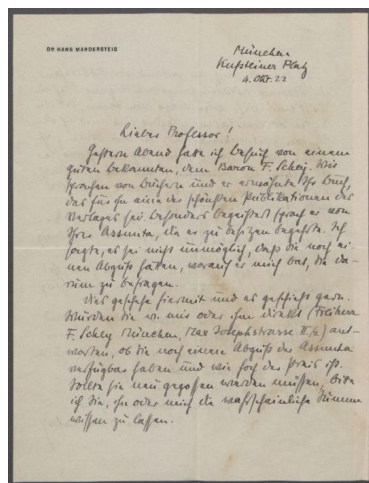 DR HANS MARDERSTEIG
München
Kufsteiner Platz
4. Okt. 22
Lieber Professor!
Gestern Abend hatte ich Besuch von einem
guten Bekannten, dem Baron F. Schey. Wir
sprachen von Büchern und er erwähnte Ihr Buch,
das für ihn eine der schönsten Publikationen des
Verlages sei. Besonders begeistert sprach er von
Ihrer Assunta, die er zu besitzen begehrte. Ich
sagte, es sei nicht unmöglich, dass Sie noch ei-
nen Abguss hätten, worauf er mich bat, Sie da-
rum zu befragen.
Dies geschehe hiermit und es geschieht gern.
Würden Sie mir oder ihm direkt (Freiherr
F. Schey München, Max Josephstrasse II/2) ant-
worten, ob Sie noch einen Abguss der Assunta
verfügbar haben und wie hoch der Preis ist.
Sollte sie neu gegossen werden müssen, bitte
ich Sie, ihn oder mich die wahrscheinliche Summe
wissen zu lassen.